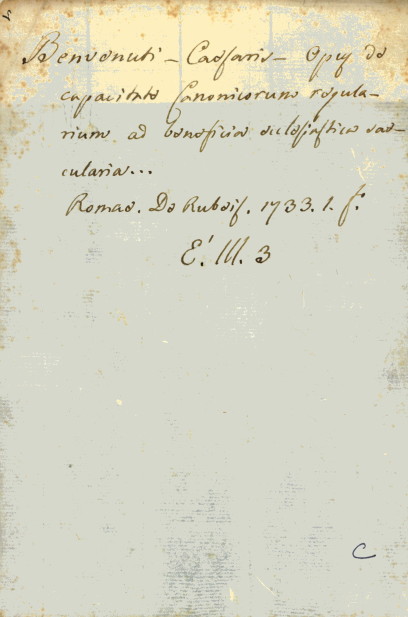 Benvenuti - Caesaris - Opus de
capacitate Canonicorum regula-
rium ad beneficia ecclesiastica sae-
cularia...
Romae. De Rubeis. 1733. 1. f.
E. III. 3
C